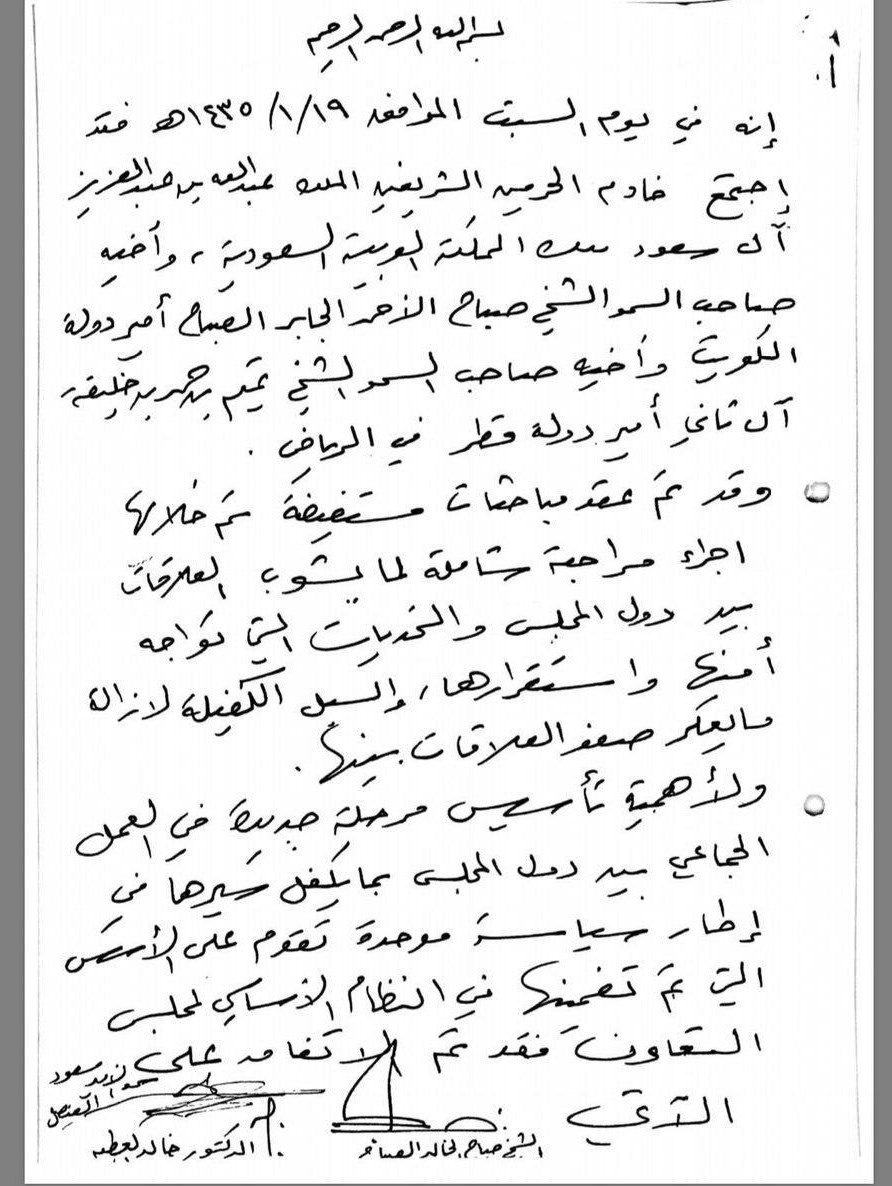 بسم الله الرحمن الرحيم
أ.
إنه في يوم السبت الموافق ١٤٣٥/١/١٩هـ فقد
إجتمع خادم الحرمين الشريفين الملك عبدالله بن عبدالعزيز
آل سعود ملك المملكة العربية السعودية، وأخيه
صاحب السمو الشيخ صباح الأحمد الجابر الصباح أمير دولة
الكويت وأخيه صاحب السمو الشيخ تميم بن حمد بن خليفة
آل ثاني أمير دولة قطر في الرياض.
وقد تم عقد مباحثات مستفيضة تم خلالها
اجراء مراجعة شاملة لما يشوب العلاقات
بين دول المجلس والتحديات التي تواجه
أمنها واستقرارها، والسبل الكفيلة لازالة
مايعكر صفو العلاقات بينها.
ولأهمية تأسيس مرحلة جديدة في العمل
الجماعي بين دول المجلس بما يكفل سيرها في
إطار سياسة موحدة تقوم على الأسس
التي تم تضمينها في النظام الاساسي لمجلس
التعاون فقد تم الاتفاق على
الآتي
سعود الفيصل
الشيخ صباح الخالد الصباح
الدكتور خالد العطيه